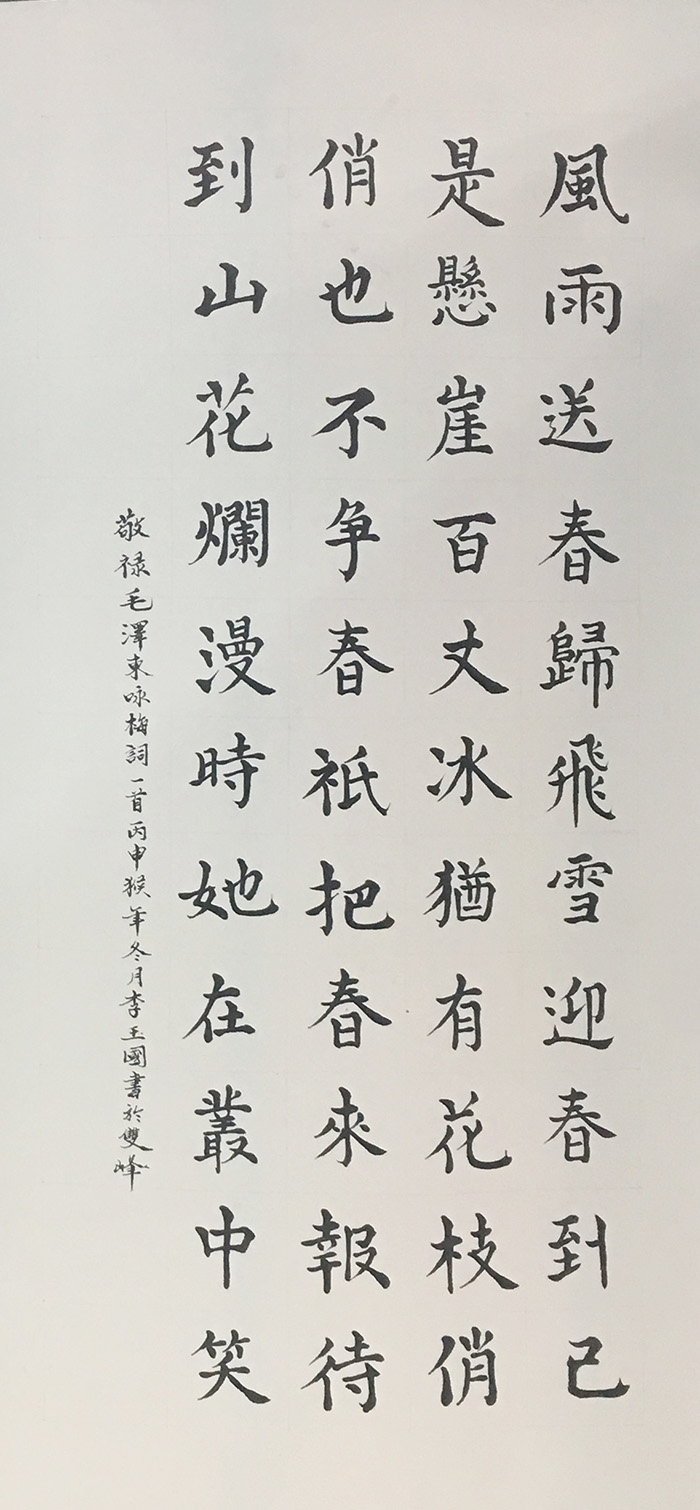 風雨送春歸飛雪迎春到已
是懸崖百丈冰猶有花枝俏
俏也不争春祇把春來報待
到山花爛漫時她在叢中笑
敬禄毛澤東咏梅詞一首丙申猴年冬月李玉國書於雙峰